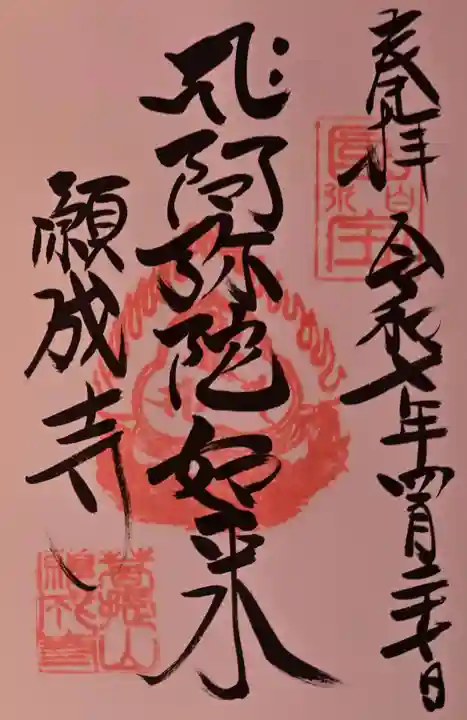 奉拝 令和七年四月二十七日
阿弥陀如来
願成寺
菩提山